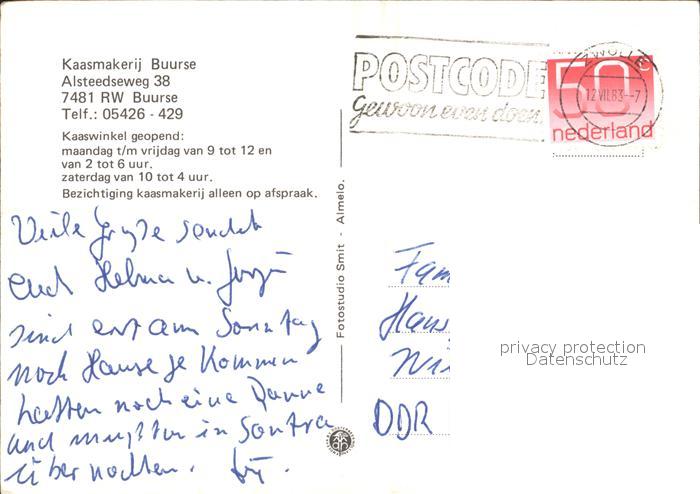 Kaasmakerij Buurse
Alsteedseweg 38
7481 RW Buurse
Telf.: 05426 - 429
Kaaswinkel geopend:
maandag t/m vrijdag van 9 tot 12 en
van 2 tot 6 uur.
zaterdag van 10 tot 4 uur.
Bezichtiging kaasmakerij alleen op afspraak.
Viele Grüße sendet
Euch Helma u.
sind erst am Sonntag
noch Hause gekommen
hatten noch eine Panne
und mußten in Sontra
übernachten.
Fotostudio Smit - Almelo.
POSTCODE
gewoon even doen.
ZWOLLE
12 VII.83--7
50c
nederland
Fam
Hans
DDR
privacy protection
Datenschutz